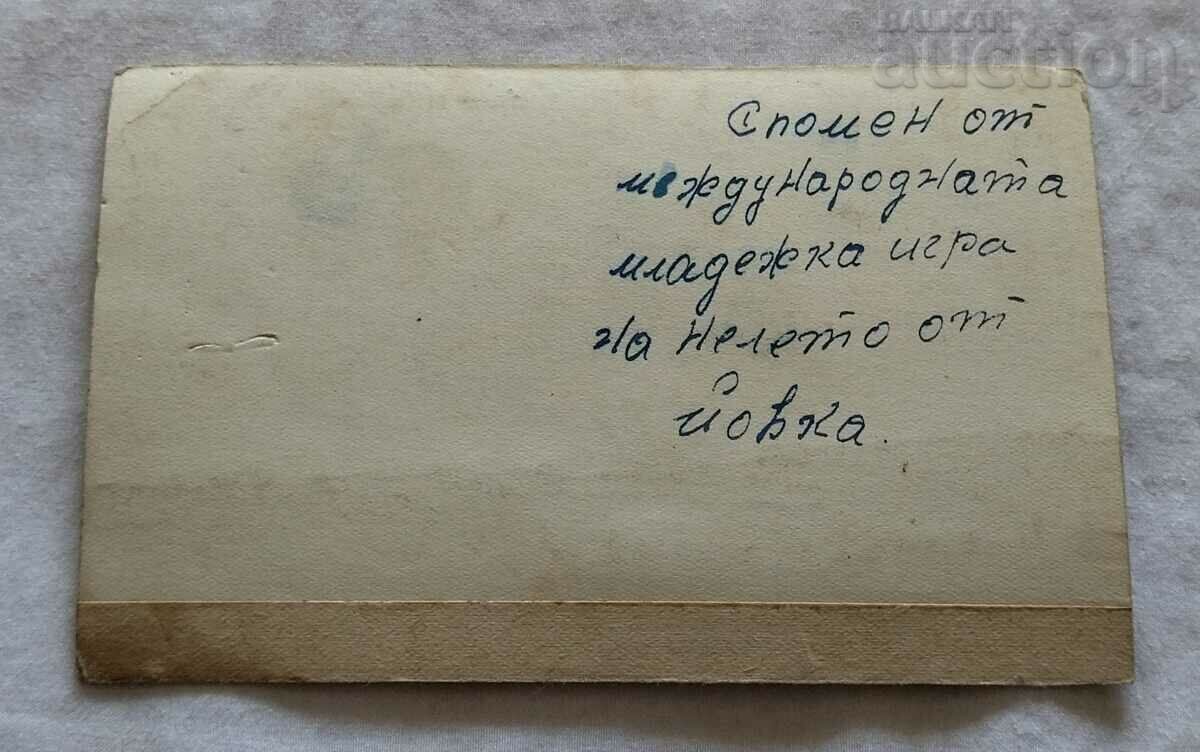 BALKAN
auction
Спомен от
международната
младежка игра
на Нелето от
Йовка.